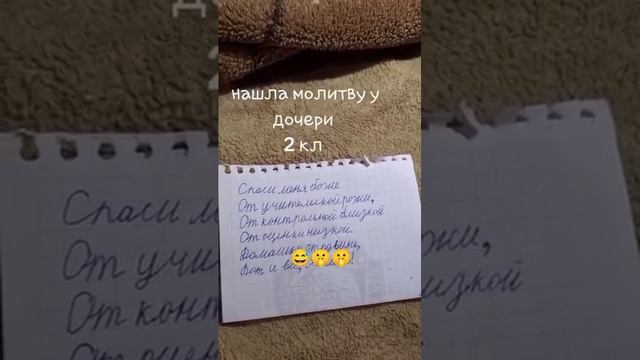 нашла молитву у
дочери
2 кл
Спаси меня боже
От учительской рожи,
От контрольной близкой
От оценки низкой.
Вот и